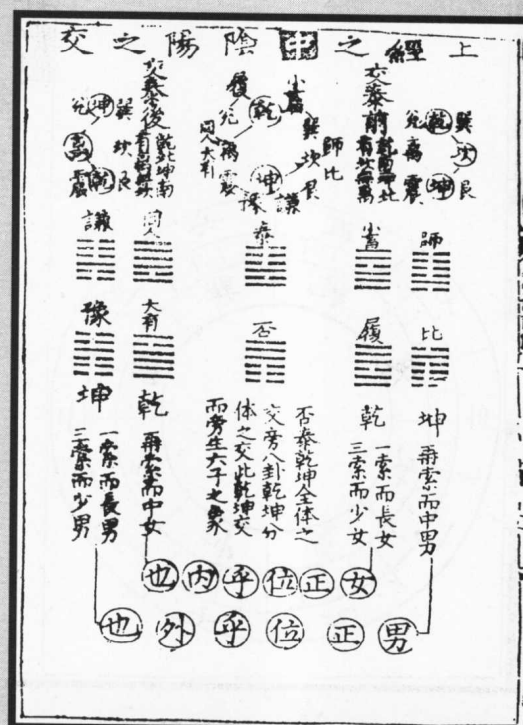 上經之中陰陽之交
交泰前
乾南坤北
有坎無離
乾
巽
坎
艮
坤
震
離
兌
小畜
履
乾
巽
坎
艮
坤
震
離
兌
師比
謙
豫
同人大有
交泰後
乾北坤南
有離無坎
坤
巽
坎
艮
乾
震
離
兌
師
小畜
泰
同人
謙
比
履
否
大有
豫
坤
再索而中男
乾
一索而長女
三索而少女
否泰乾坤全体之
交旁八卦乾坤分
体之交此乾坤交
而旁生六子之象
乾
再索而中女
坤
一索而長男
三索而少男
女正位乎內也
男正位乎外也